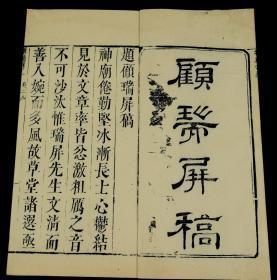 顧瑞屏稿
題顧瑞屏稿
神廟倦勤堅冰漸長士心鬱結
見於文章率皆慾激粗厲之音
不可沙汰惟瑞屏先生文清而
善入婉而多風故草堂諸選亟